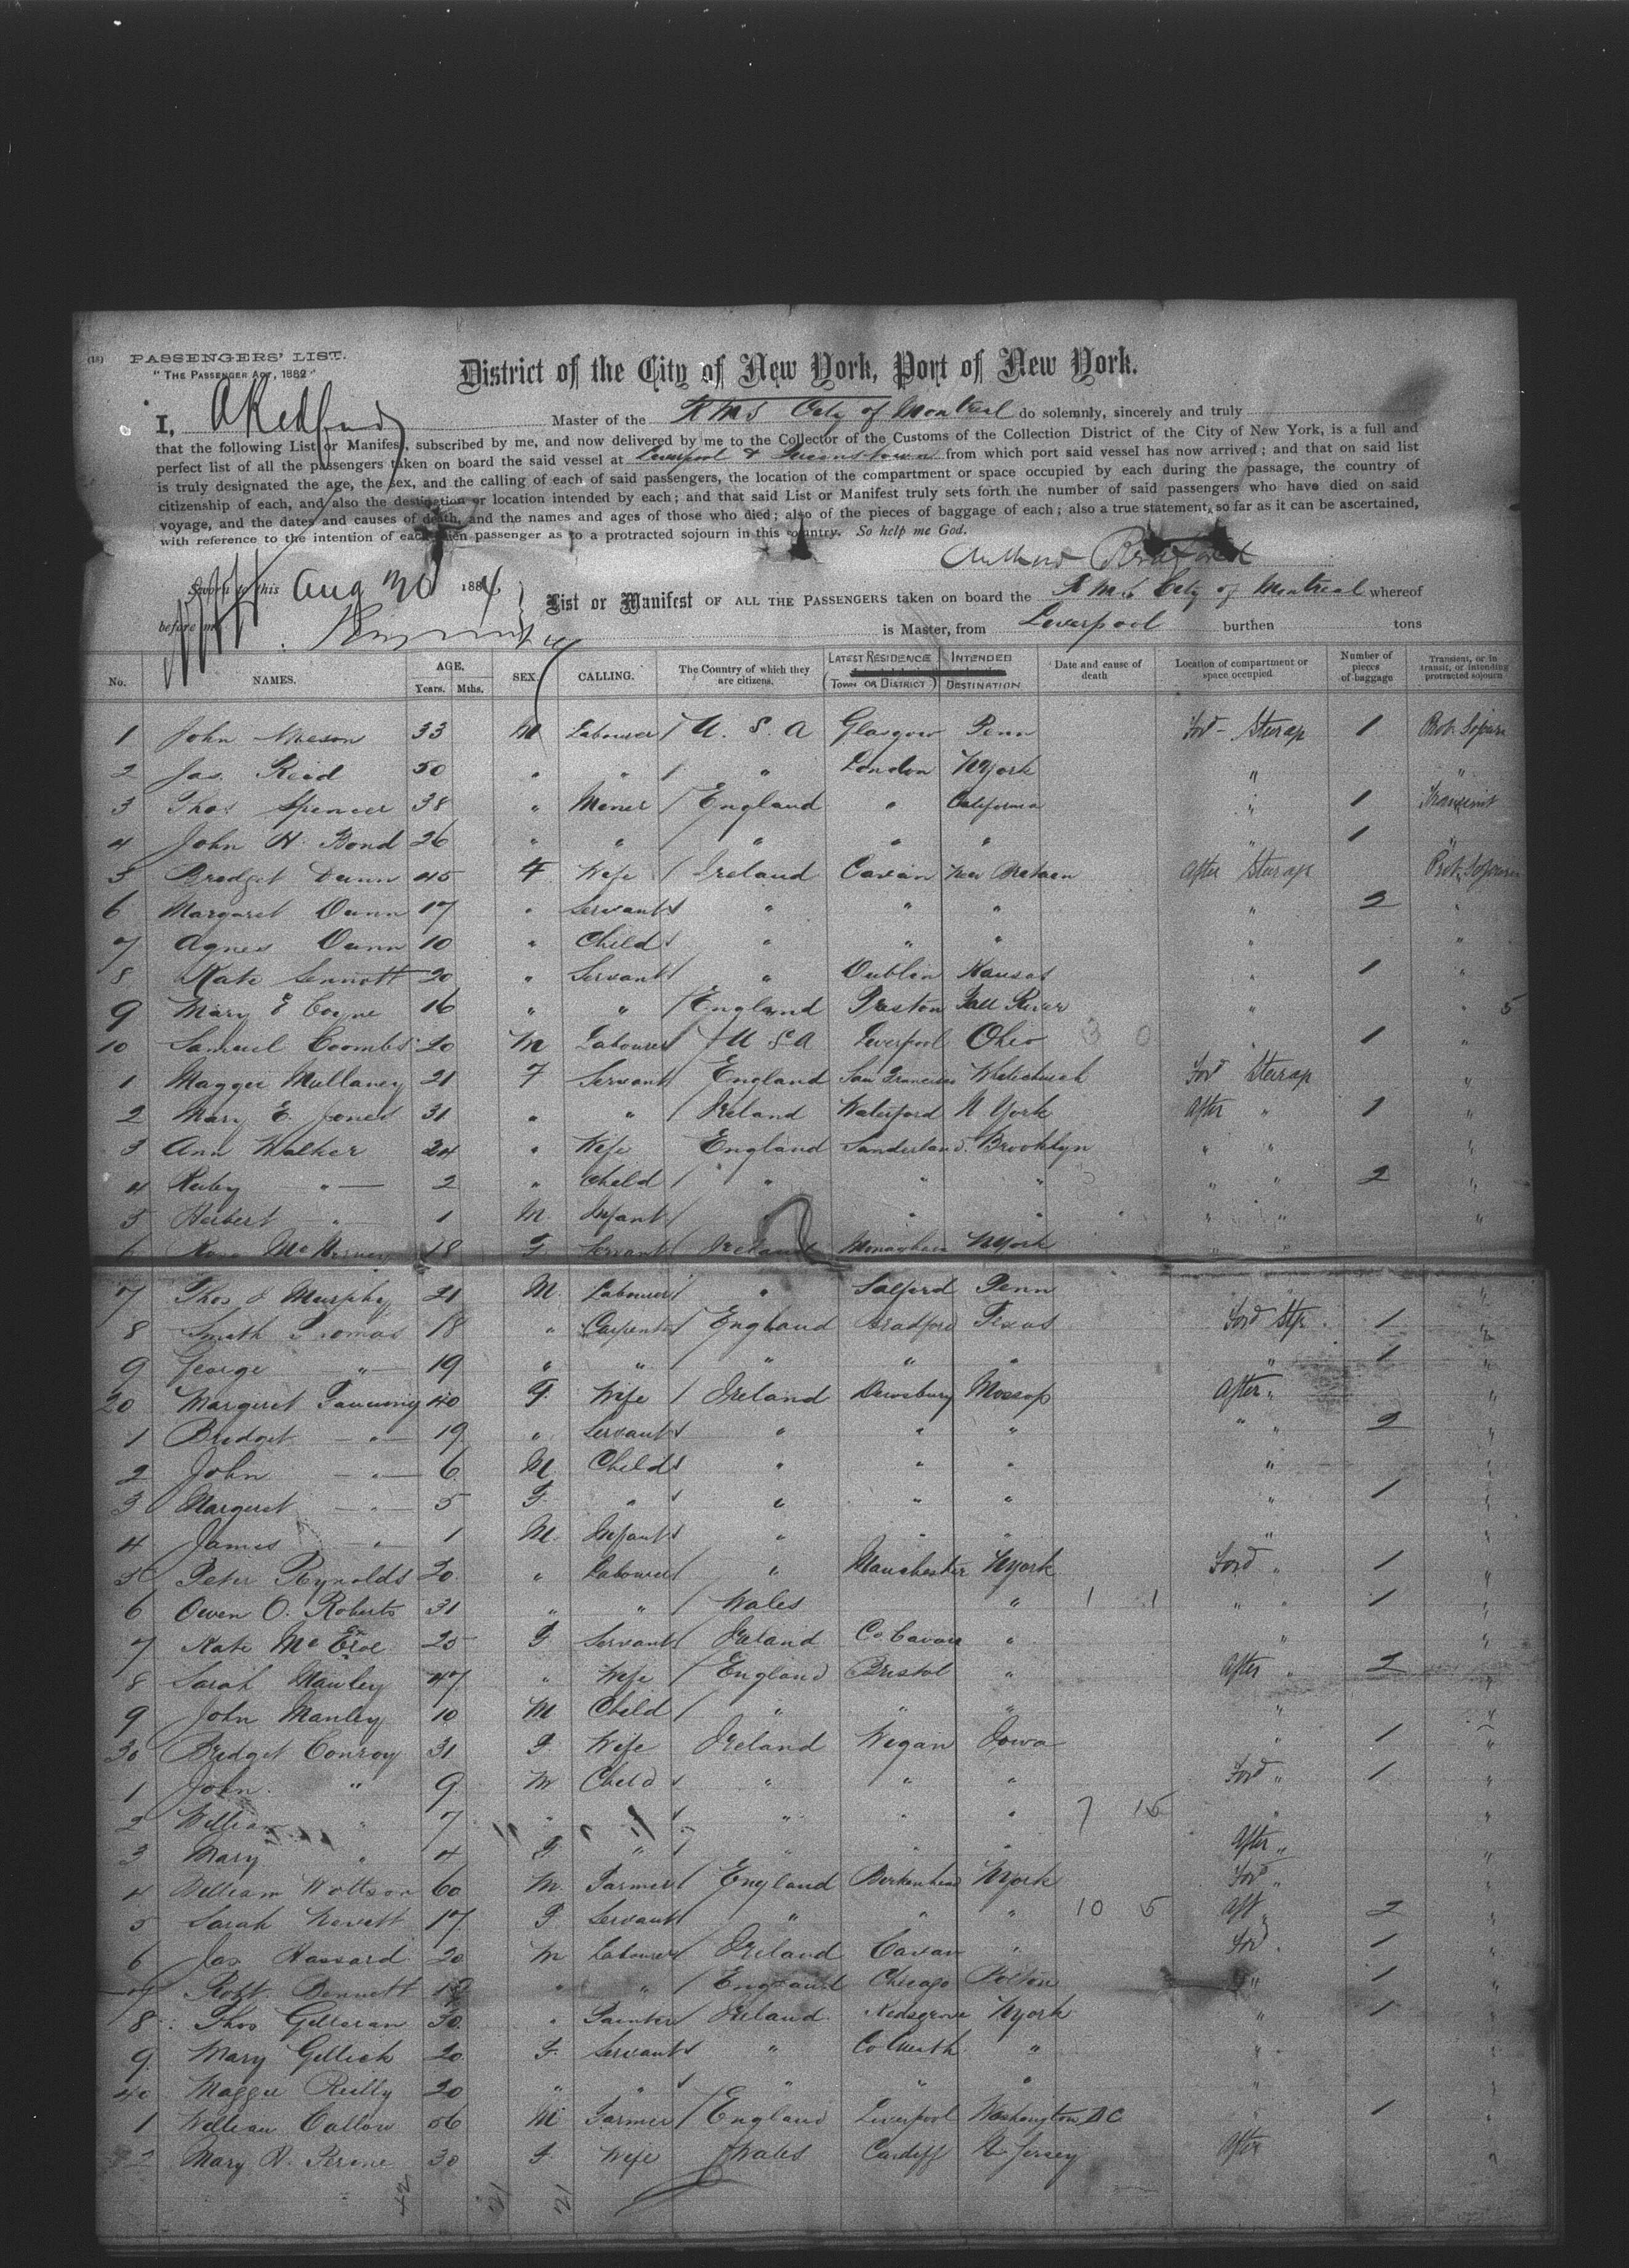 (18) PASSENGERS' LIST.
"THE PASSENGER ACT, 1882"
District of the City of New York, Port of New York.
I, Master of the RMS City of Montreal do solemnly, sincerely and truly
that the following List or Manifest, subscribed by me, and now delivered by me to the Collector of the Customs of the Collection District of the City of New York, is a full and
perfect list of all the passengers taken on board the said vessel at Liverpool & Queenstown from which port said vessel has now arrived; and that on said list
is truly designated the age, the sex, and the calling of each of said passengers, the location of the compartment or space occupied by each during the passage, the country of
citizenship of each, and also the destination or location intended by each; and that said List or Manifest truly sets forth the number of said passengers who have died on said
voyage, and the dates and causes of death, and the names and ages of those who died; also of the pieces of baggage of each; also a true statement, so far as it can be ascertained,
with reference to the intention of each alien passenger as to a protracted sojourn in this country. So help me God.
Sworn to this Aug 30 1884
before me
List or Manifest OF ALL THE PASSENGERS taken on board the RMS City of Montreal whereof
is Master, from Liverpool burthen tons
No. NAMES. AGE. Years. Mths. SEX. CALLING. The Country of which they are citizens. LATEST RESIDENCE (TOWN OR DISTRICT) INTENDED DESTINATION Date and cause of death Location of compartment or space occupied Number of pieces of baggage Transient, or in transit, or intending protracted sojourn
1 John 33 M Labourer U.S.A Glasgow Penn Ford Steerage 1
2 Jas. Reid 50 " " " London NYork " "
3 Thos Spencer 38 " Miner England " California " 1 Transient
4 John H. Bond 26 " " " " " 1 "
5 Bridget Dunn 45 F Wife Ireland Cavan After Steerage
6 Margaret Dunn 17 " Servant " " " " 2 "
7 Agnes Dunn 10 " Child " " " " "
8 Kate Sennott 20 " Servant " Dublin Kansas " 1 "
9 Mary E Coyne 16 " " England Preston Fall River " " 5
10 Samuel Coombs 20 M Labourer U S A Liverpool Ohio 3 0 " 1 "
1 Maggie Mullaney 21 F Servant England San Francisco Whitechurch Ford Steerage "
2 Mary E. Jones 31 " " Ireland Waterford N York After " 1 "
3 Ann Walker 24 " Wife England Sunderland Brooklyn " " "
4 Ruby " 2 " Child " " " " " 2 "
5 Herbert " 1 M Infant " " " " " "
6 18 F Servant Ireland Monaghan NYork " "
7 Thos J Murphy 21 M Labourer " Salford Penn "
8 Smith Thomas 18 " Carpenter England Bradford Texas Ford Stge 1 "
9 George " 19 " " " " " " 1 "
20 Margaret 40 F Wife Ireland Dewsbury After " "
1 Bridget " 19 " Servant " " " " 2 "
2 John " 6 M Child " " " " "
3 Margaret " 5 F " " " " " 1 "
4 James " 1 M Infant " " " " "
5 Peter Reynolds 20 " Labourer " Manchester NYork Ford " 1 "
6 Owen O. Roberts 31 " " Wales " 1 1 " " 1 "
7 Kate 25 F Servant Ireland Co Cavan " " "
8 Sarah Manley 47 " Wife England Bristol " After " 2 "
9 John Manley 10 M Child " " " " "
30 Bridget Conroy 31 F Wife Ireland Wigan Iowa " 1 "
1 John " 9 M Child " " " Ford " 1 "
2 William " 7 " " " " " 7 15 " "
3 Mary " 4 F " " " " After " "
4 William 60 M Farmer England Birkenhead NYork Ford " "
5 Sarah 17 F Servant " " " 10 5 Aft " 2 "
6 Jas Hassard 20 M Labourer Ireland Cavan " Ford 1 "
7 Robt. Bennett " " England Chicago Bolton " 1 "
8 Thos 30 " Painter Ireland NYork " 1 "
9 Mary Gillick 20 F Servant " " " "
40 Maggie Reilly 20 " " " " " " "
1 William Callow 56 M Farmer England Liverpool Washington DC " 1 "
2 Mary 30 F Wife Wales Cardiff N Jersey After "
42 21 21